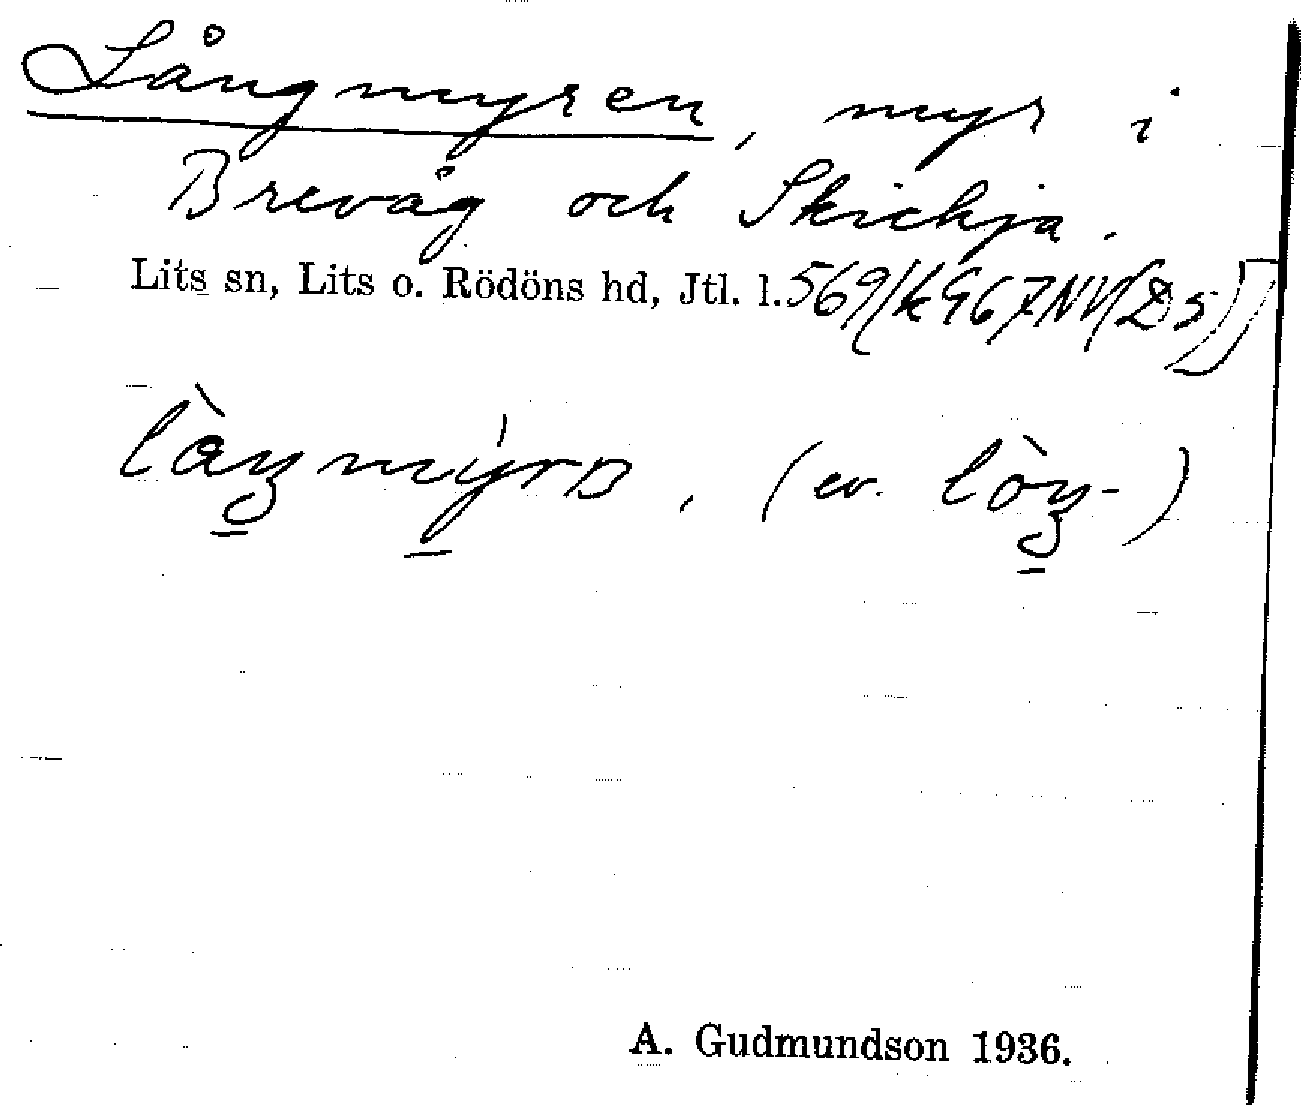 Långmyren, myr i
Brevåg och Skickja.
Lits sn, Lits o. Rödöns hd, Jtl. l. 569/k 967NV(D5)
làŋmýrɒ, (ev. lòŋ-)
A. Gudmundson 1936.